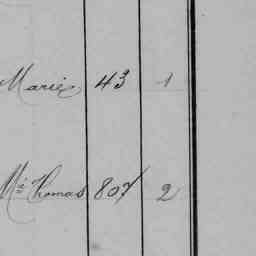 Marie 43 1
Mc Thomas 807 2